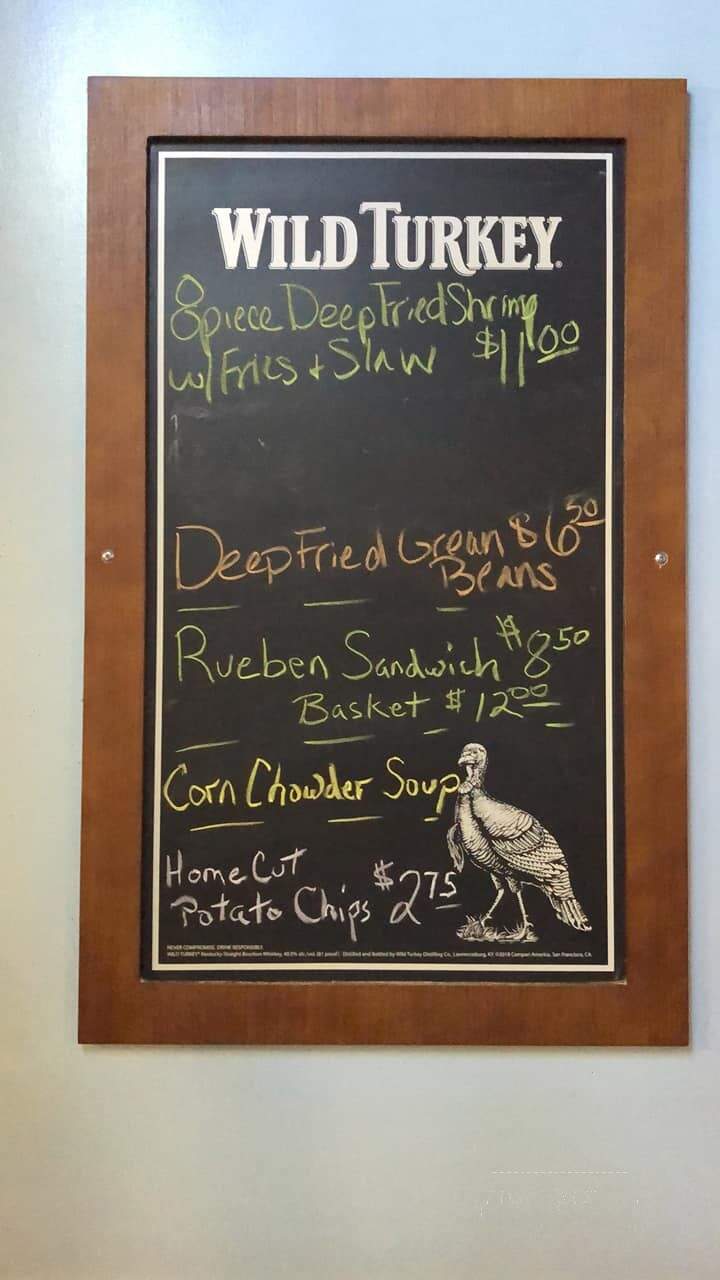 WILD TURKEY.
8 piece Deep Fried Shrimp
w/ Fries + Slaw $11.00
Deep Fried Grean $6.50
Beans
Rueben Sandwich $8.50
Basket $12.00
Corn Chowder Soup
Home Cut
Potato Chips $2.75
NEVER COMPROMISE. DRINK RESPONSIBLY.
WILD TURKEY® Kentucky Straight Bourbon Whiskey, 40.5% alc./vol. (81 proof). Distilled and Bottled by Wild Turkey Distilling Co., Lawrenceburg, KY. ©2018 Campari America, San Francisco, CA.